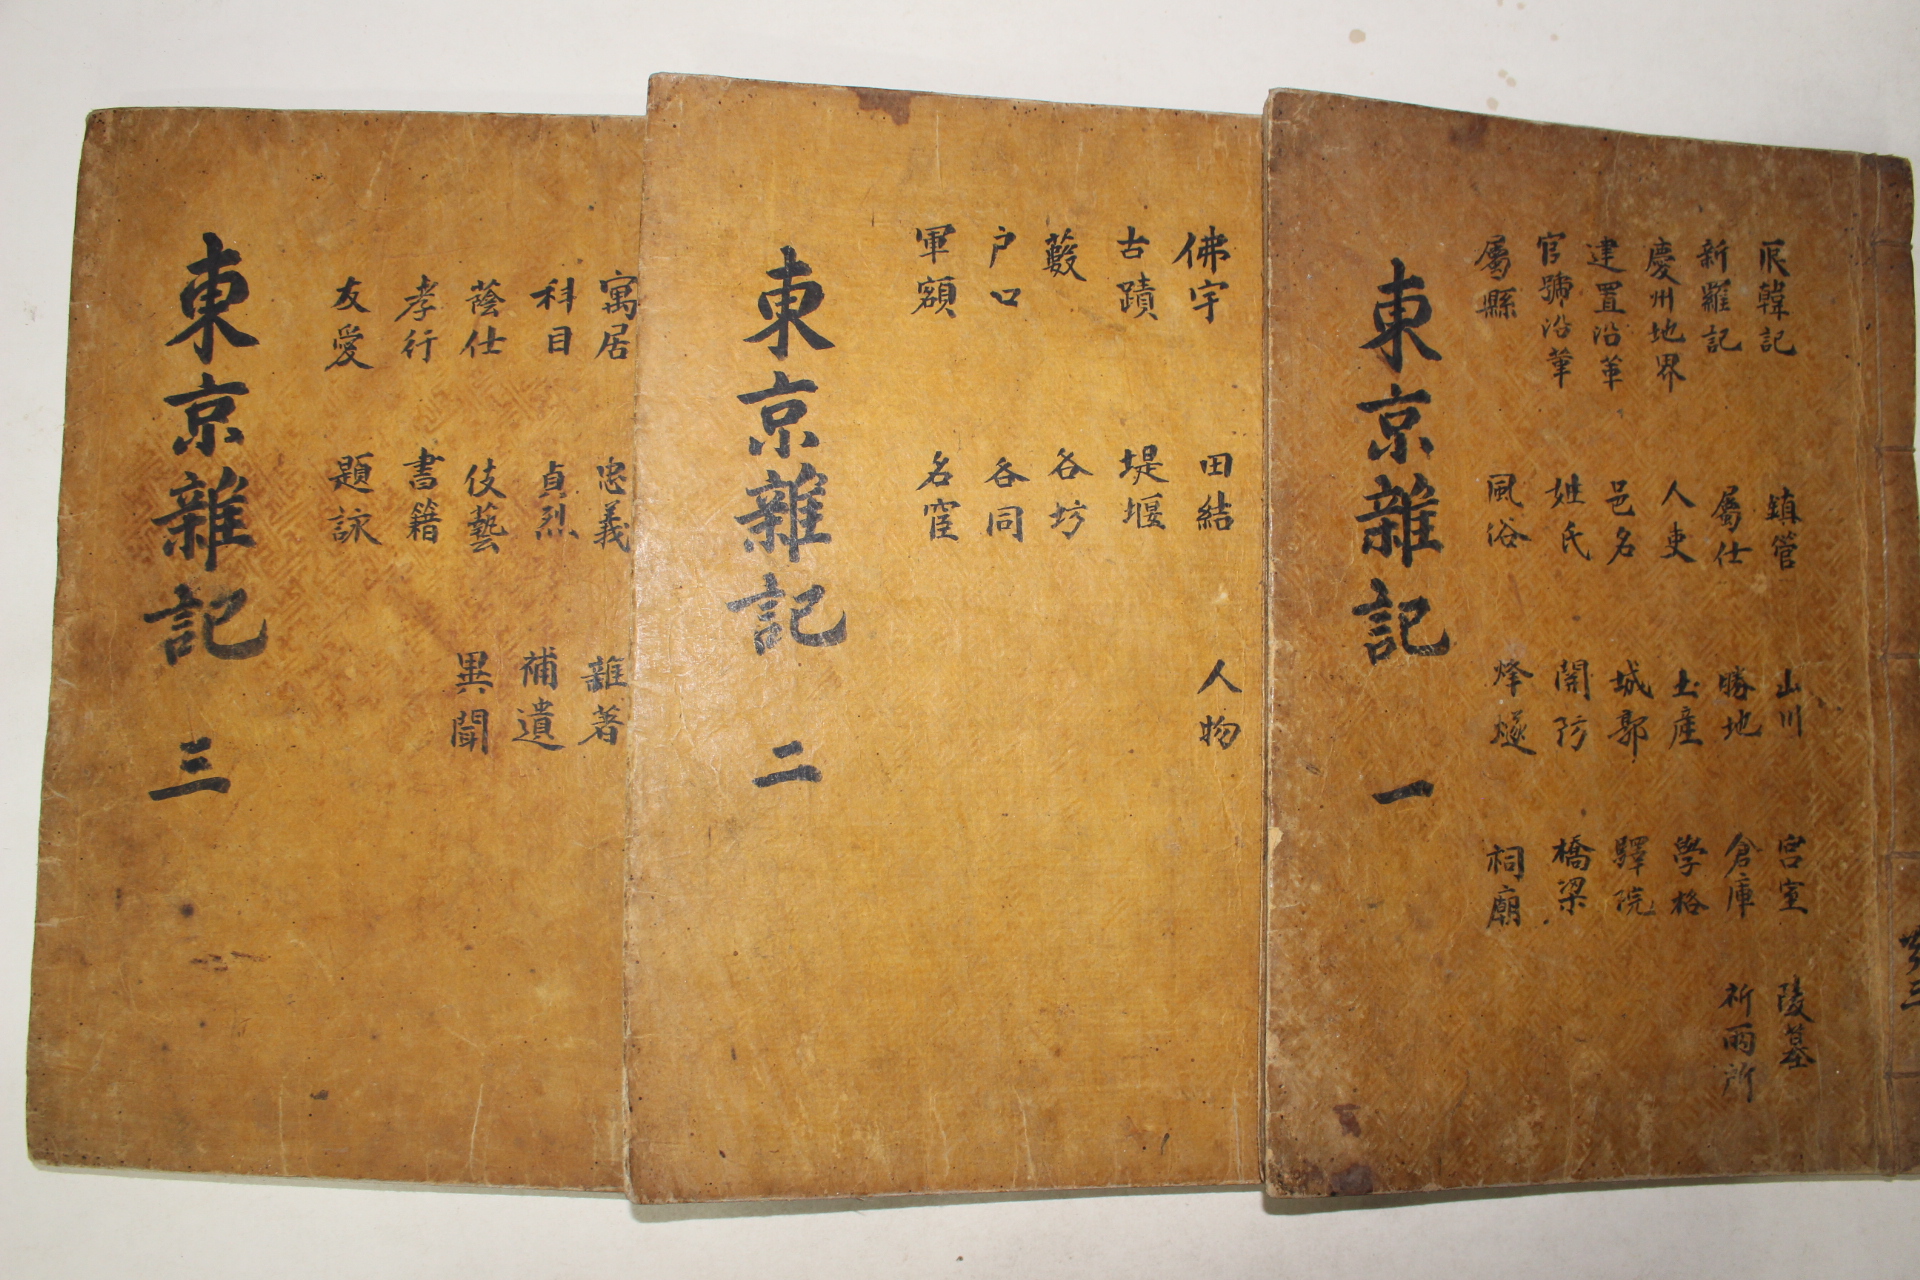 辰韓記
新羅記
慶州地界
建置沿革
官號沿革
屬縣
鎮管
屬仕
人吏
邑名
姓氏
風俗
山川
勝地
土産
城郭
関防
烽燧
宮室
倉庫
學格
驛院
橋梁
祠廟
陵墓
祈雨所
東京雜記 一
佛宇
古蹟
藪
戶口
軍額
田結
堤堰
各坊
各同
人物
東京雜記 二
寓居
科目
蔭仕
孝行
友愛
忠義
貞烈
伎藝
書籍
題詠
雜著
補遺
異聞
東京雜記 三